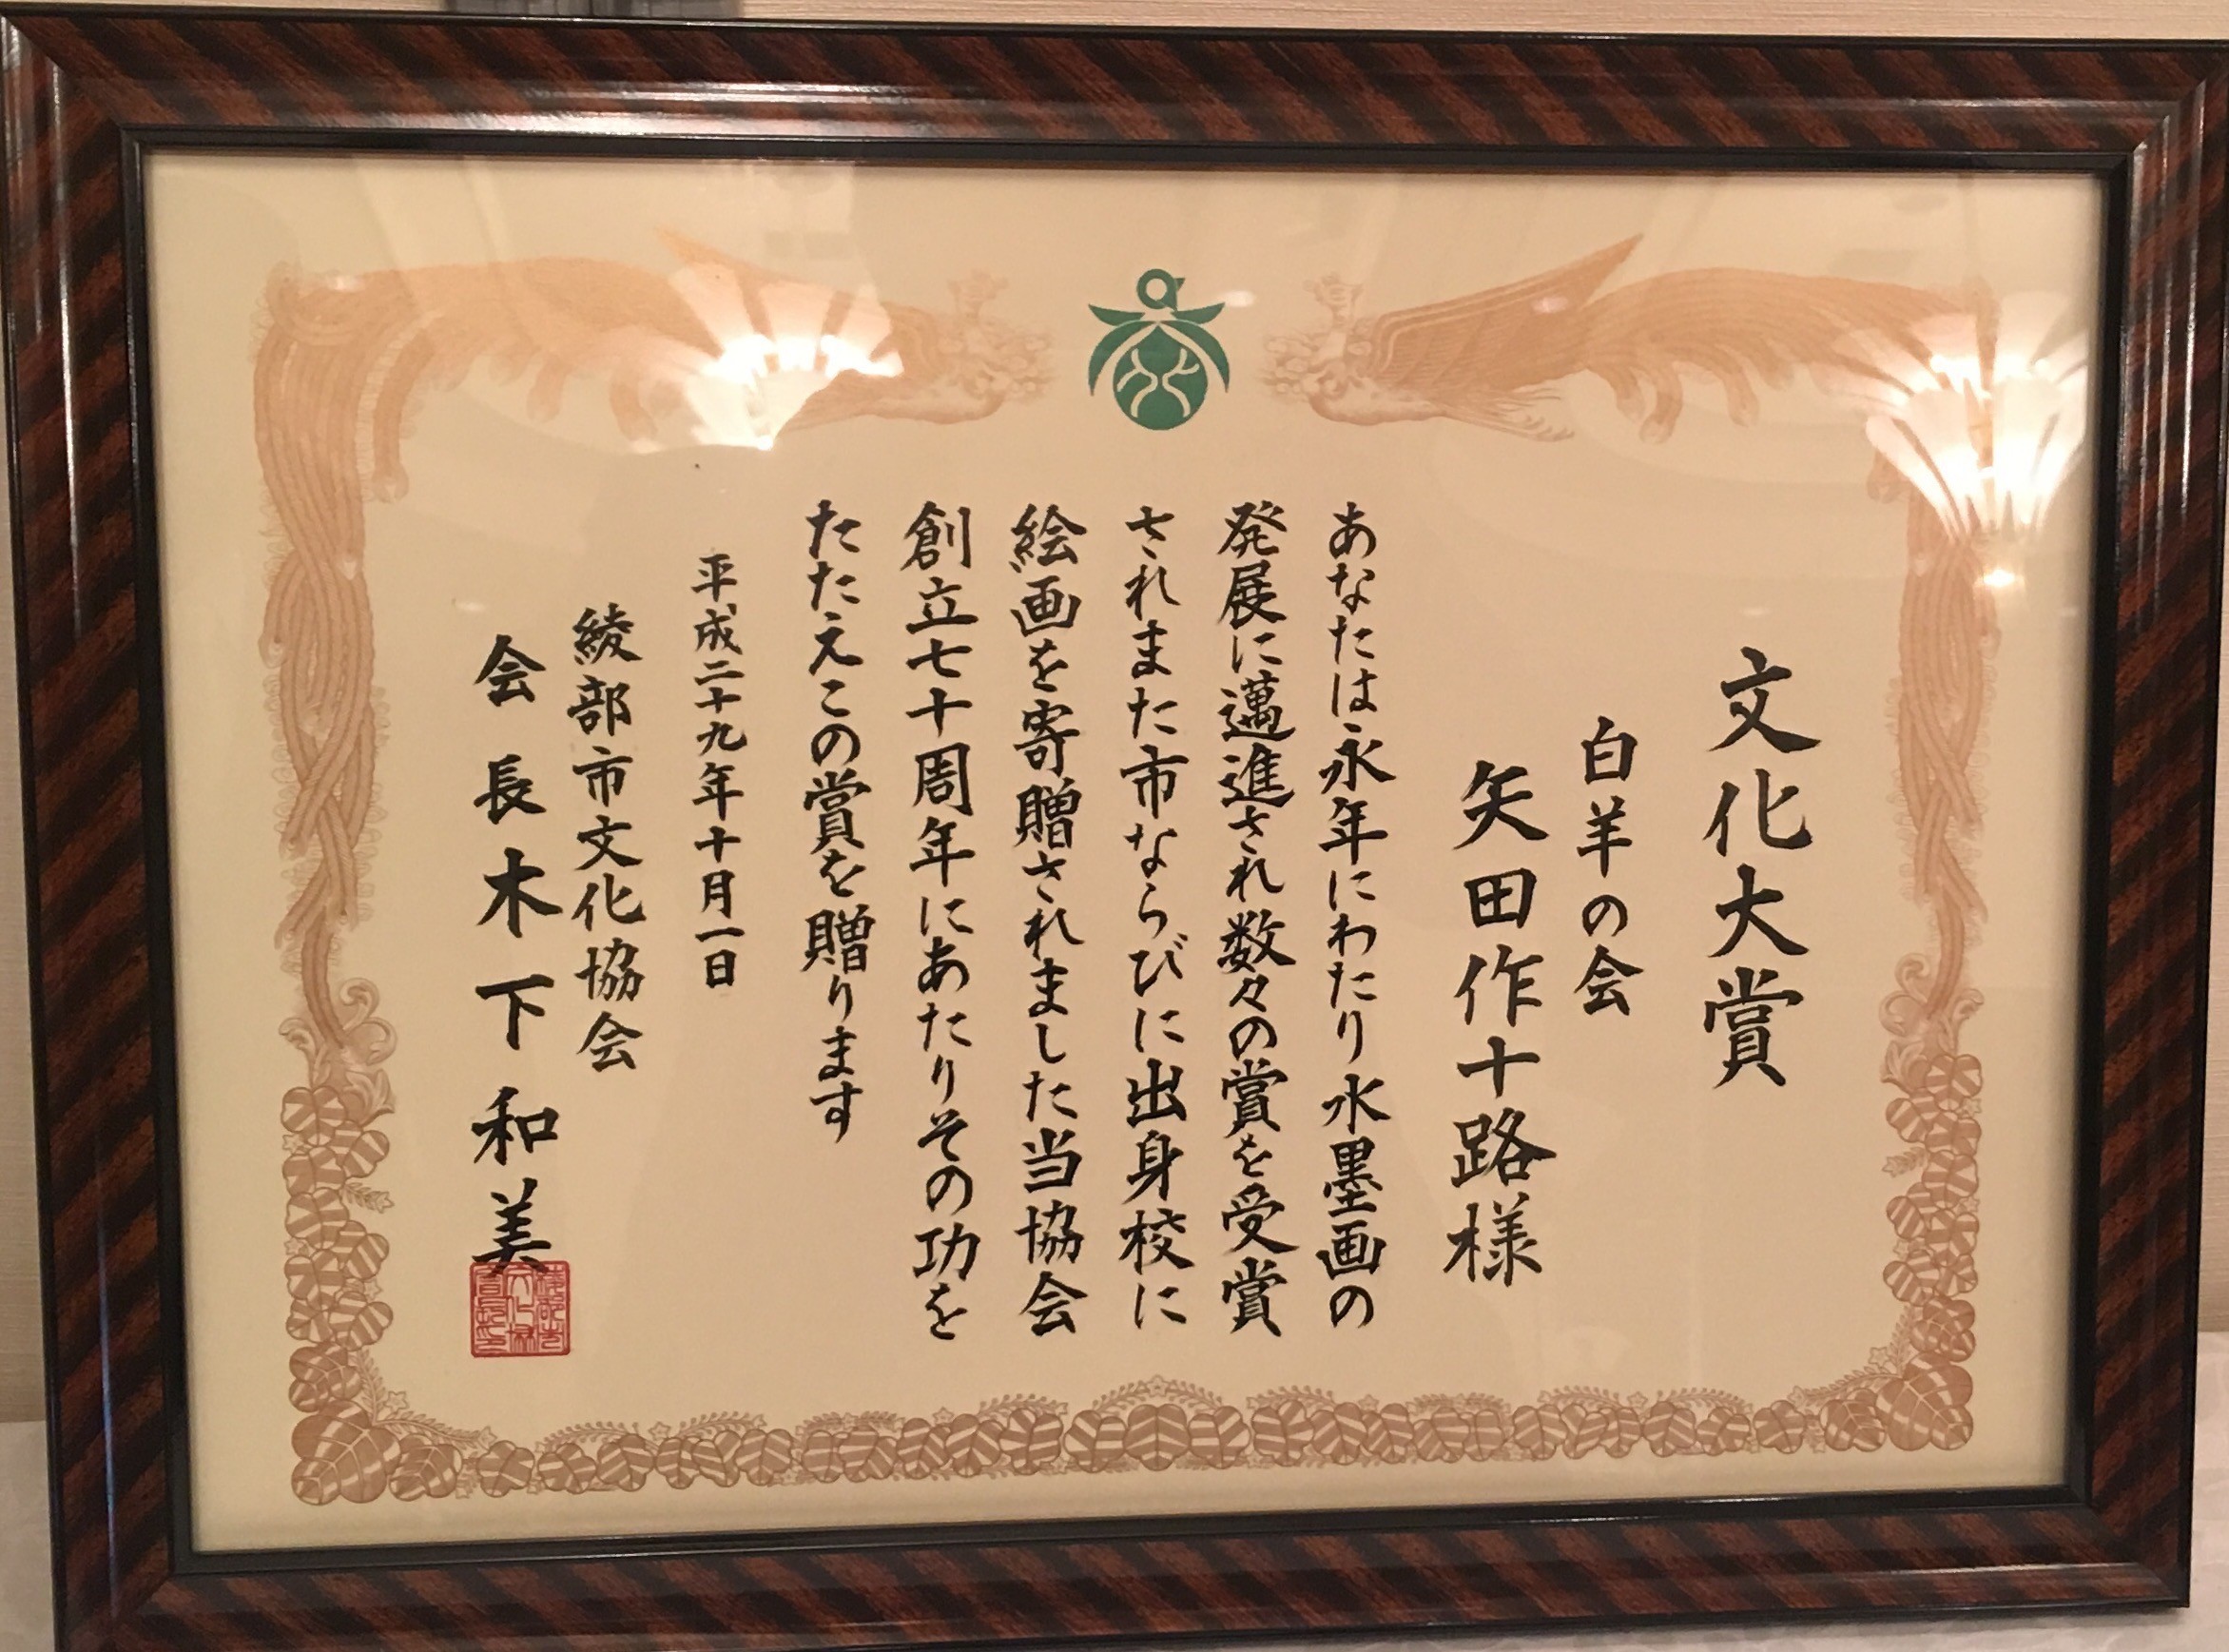 文化大賞
白羊の会
矢田作十路様
あなたは永年にわたり水墨画の
発展に邁進され数々の賞を受賞
されまた市ならびに出身校に
絵画を寄贈されました当協会
創立七十周年にあたりその功を
たたえこの賞を贈ります
平成二十九年十月一日
綾部市文化協会
会長木下和美